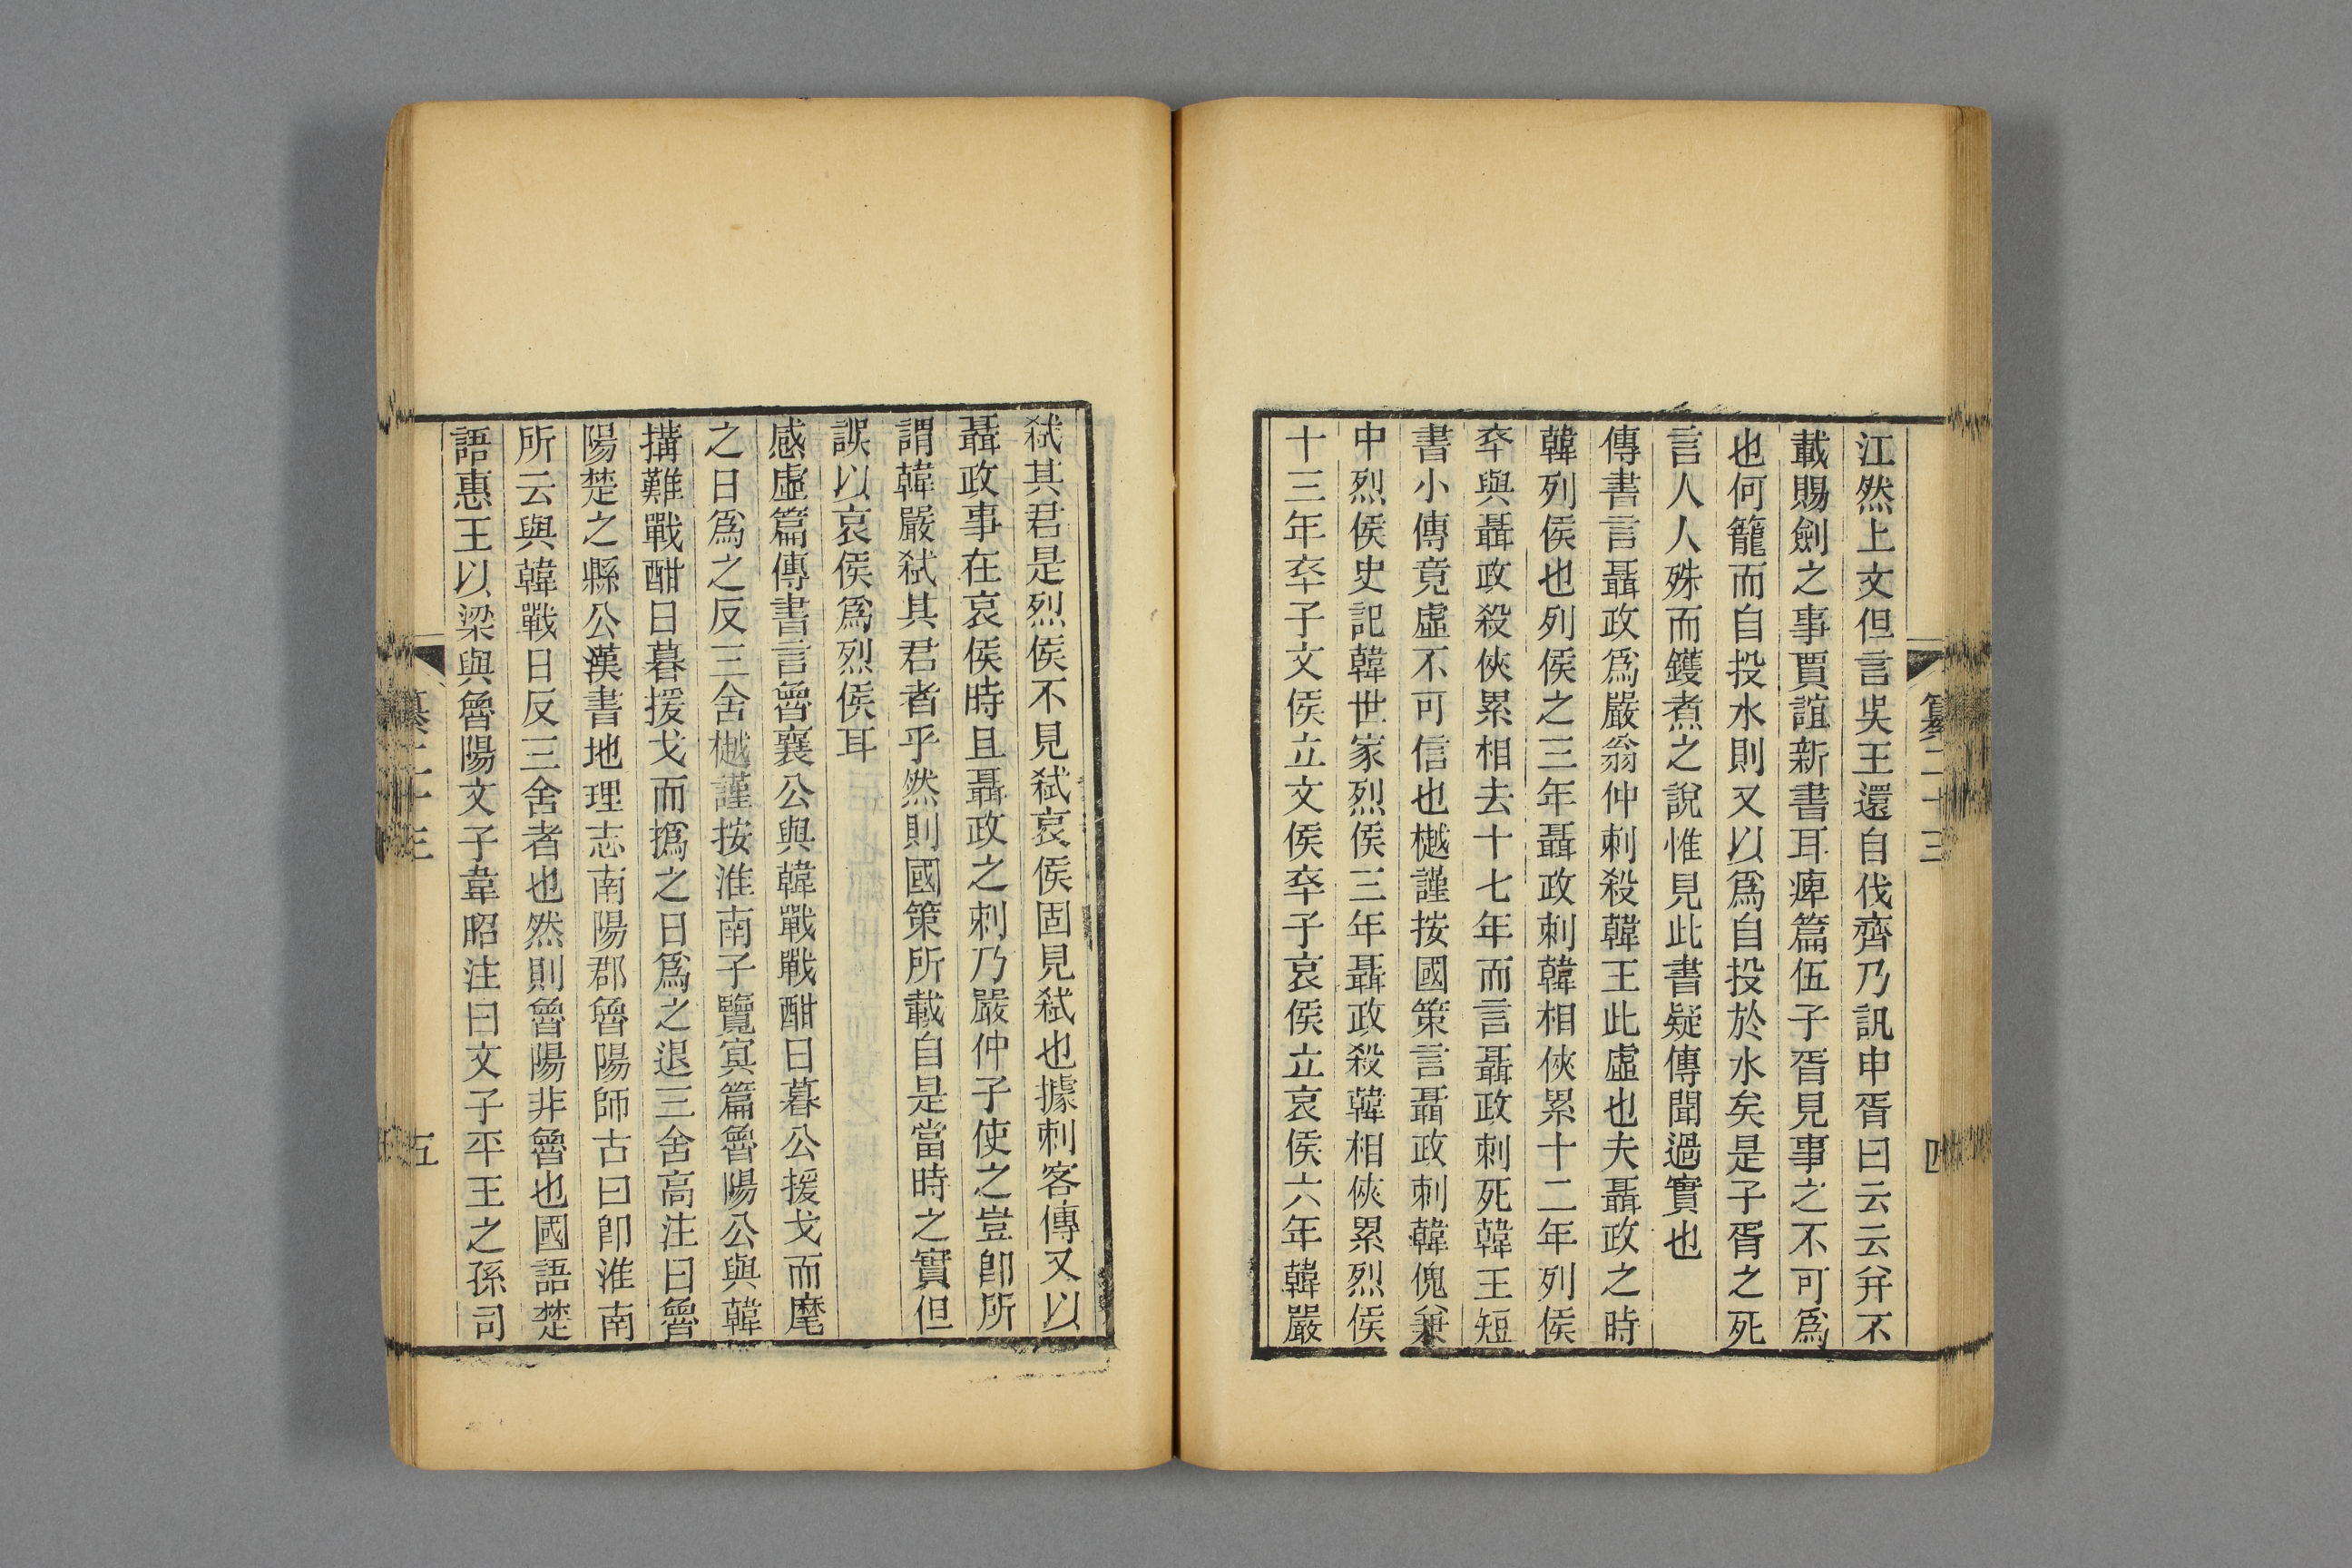 江然上文但言吳王還自伐齊乃訊申胥曰云云幷不
載賜劍之事賈誼新書耳痺篇伍子胥見事之不可爲
也何籠而自投水則又以爲自投於水矣是子胥之死
言人人殊而鑊煮之說惟見此書疑傳聞過實也
傳書言聶政爲嚴翁仲刺殺韓王此虛也夫聶政之時
韓列侯也列侯之三年聶政刺韓相俠累十二年列侯
卒與聶政殺俠累相去十七年而言聶政刺死韓王短
書小傳竟虛不可信也樾謹按國策言聶政刺韓傀兼
中烈侯史記韓世家烈侯三年聶政殺韓相俠累烈侯
十三年卒子文侯立文侯卒子哀侯立哀侯六年韓嚴
纂二十三
四
弑其君是烈侯不見弑哀侯固見弑也據刺客傳又以
聶政事在哀侯時且聶政之刺乃嚴仲子使之豈卽所
謂韓嚴弑其君者乎然則國策所載自是當時之實但
誤以哀侯爲烈侯耳
感虛篇傳書言魯襄公與韓戰戰酣日暮公援戈而麾
之日爲之反三舍樾謹按淮南子覽冥篇魯陽公與韓
搆難戰酣日暮援戈而撝之日爲之退三舍高注曰魯
陽楚之縣公漢書地理志南陽郡魯陽師古曰卽淮南
所云與韓戰日反三舍者也然則魯陽非魯也國語楚
語惠王以梁與魯陽文子韋昭注曰文子平王之孫司
纂二十三
五